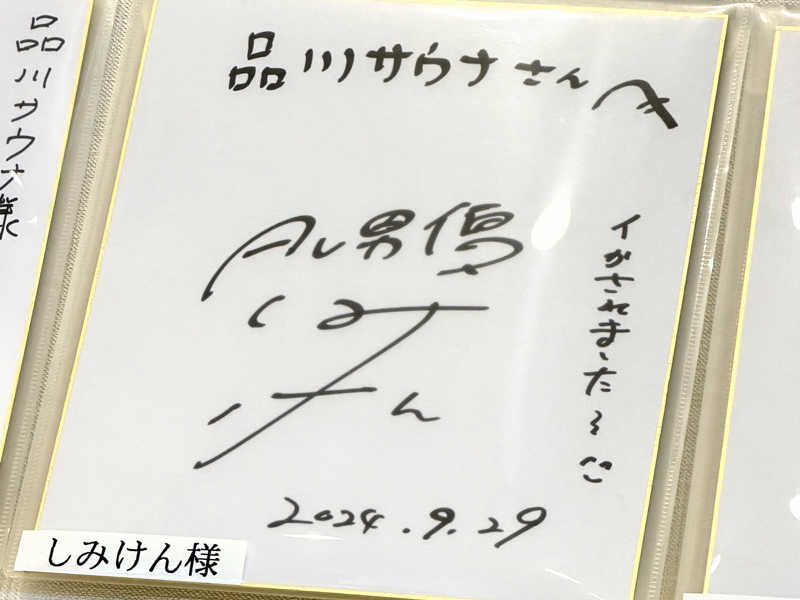 品川サウナさんへ
AV男優
しみけん
イかされました〜
2024.9.29
しみけん様
品川サウナ様